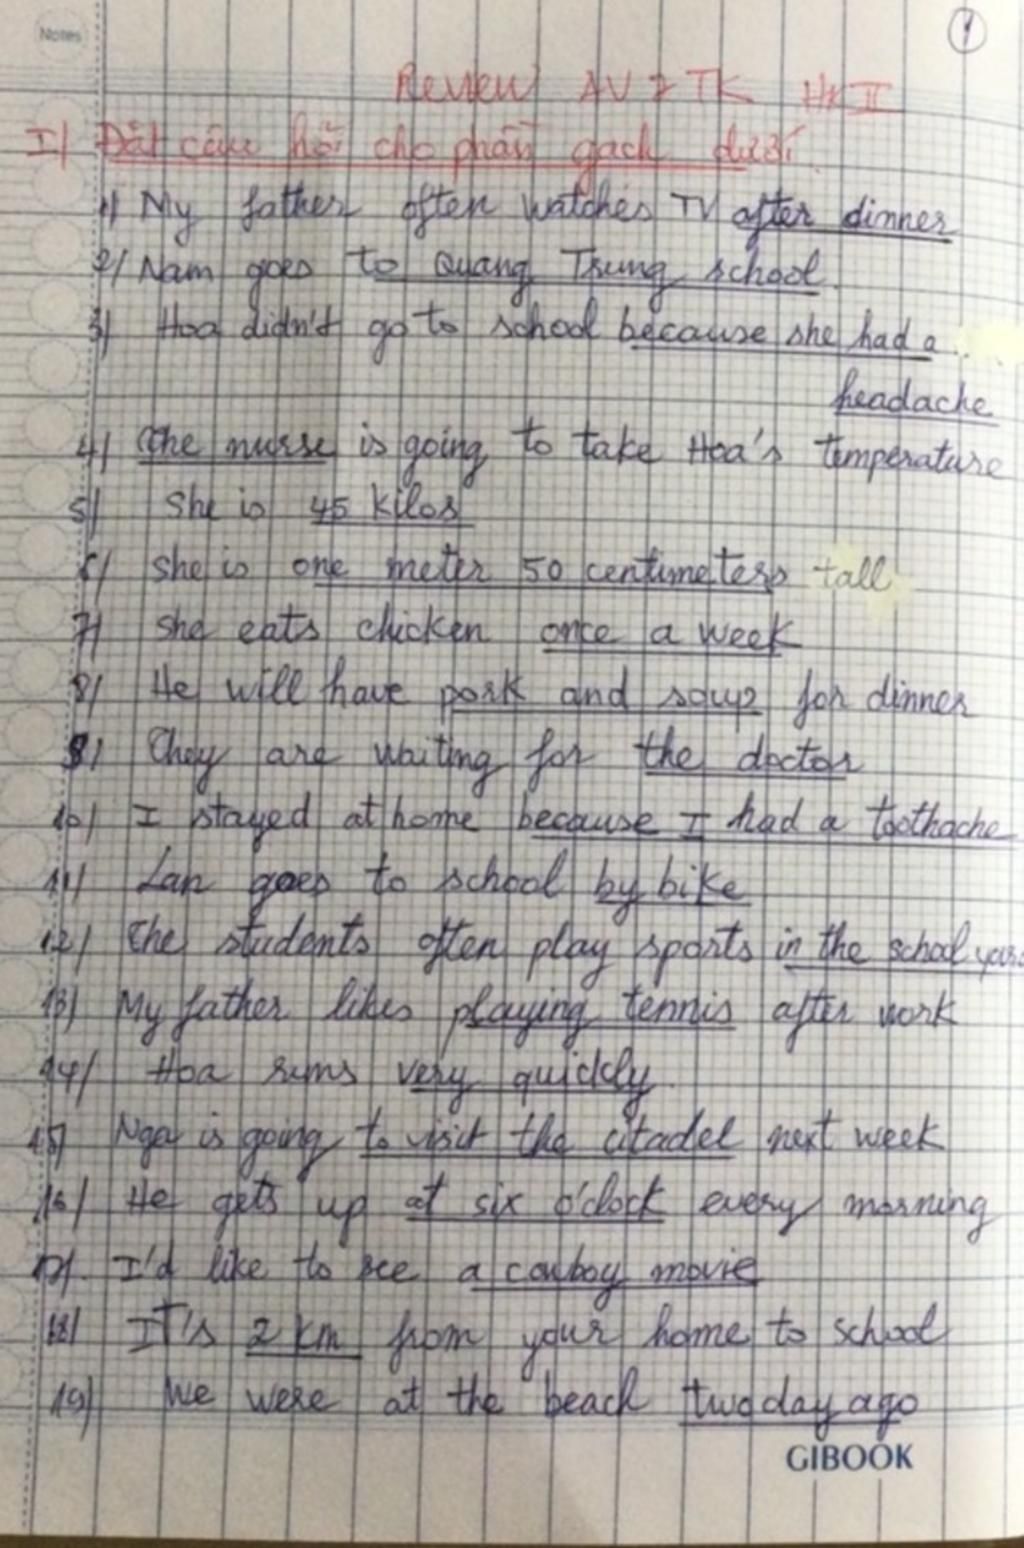 Notes
1
Review AV 7 TK HKII
I/ Đặt câu hỏi cho phần gạch dưới
1/ My father often watches TV after dinner
2/ Nam goes to Quang Trung school.
3/ Hoa didn't go to school because she had a
headache
4/ The nurse is going to take Hoa's temperature
5/ She is 45 kilos
6/ She is one meter 50 centimeters tall
7/ She eats chicken once a week
8/ He will have pork and soup for dinner
9/ They are waiting for the doctor
10/ I stayed at home because I had a toothache
11/ Lan goes to school by bike
12/ The students often play sports in the school
13/ My father likes playing tennis after work
14/ Hoa runs very quickly.
15/ Nga is going to visit the citadel next week
16/ He gets up at six o'clock every morning
17/. I'd like to see a cowboy movie
18/ It's 2 km from your home to school
19/ We were at the beach two day ago
GIBOOK